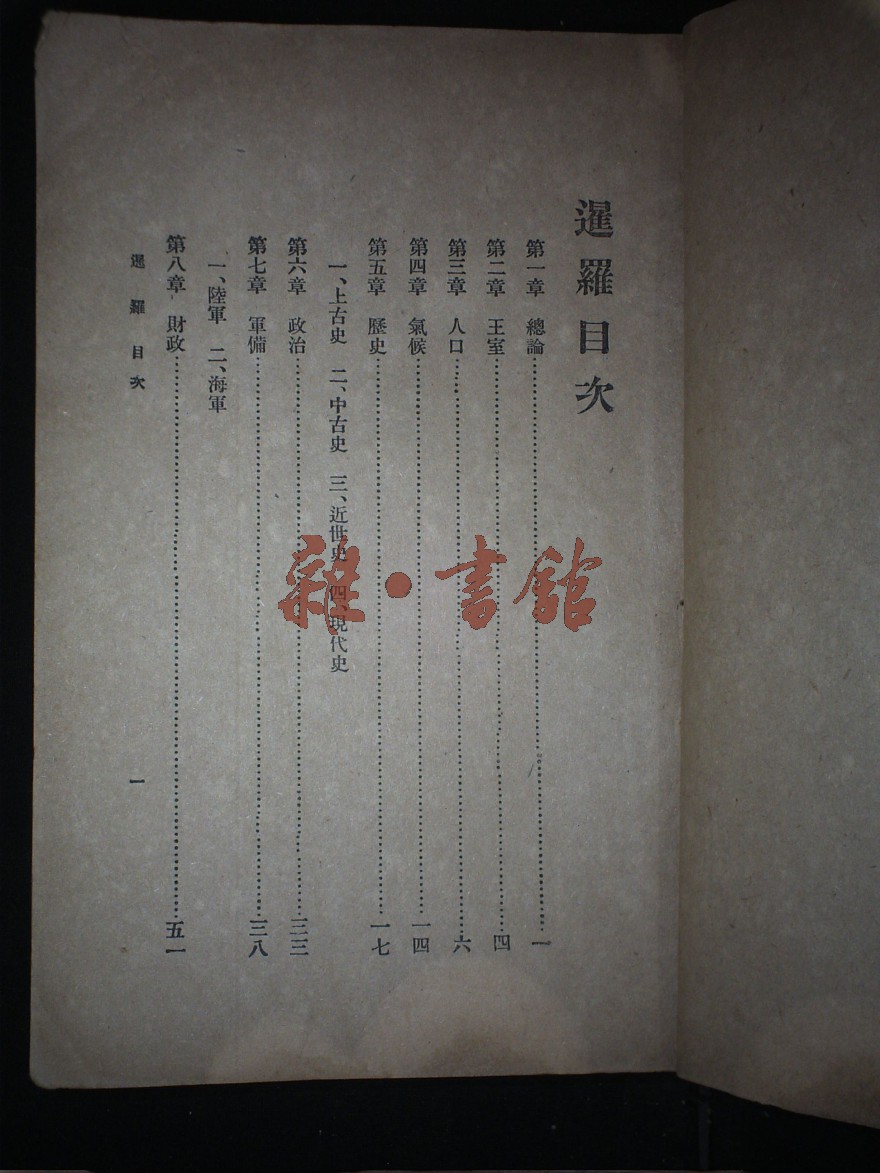 暹羅目次
第一章 總論……一
第二章 王室……四
第三章 人口……六
第四章 氣候……一四
第五章 歷史……一七
一、上古史 二、中古史 三、近世史 四、現代史
第六章 政治……三三
第七章 軍備……三八
一、陸軍 二、海軍
第八章 財政……五一
暹羅目次
一
雜・書館